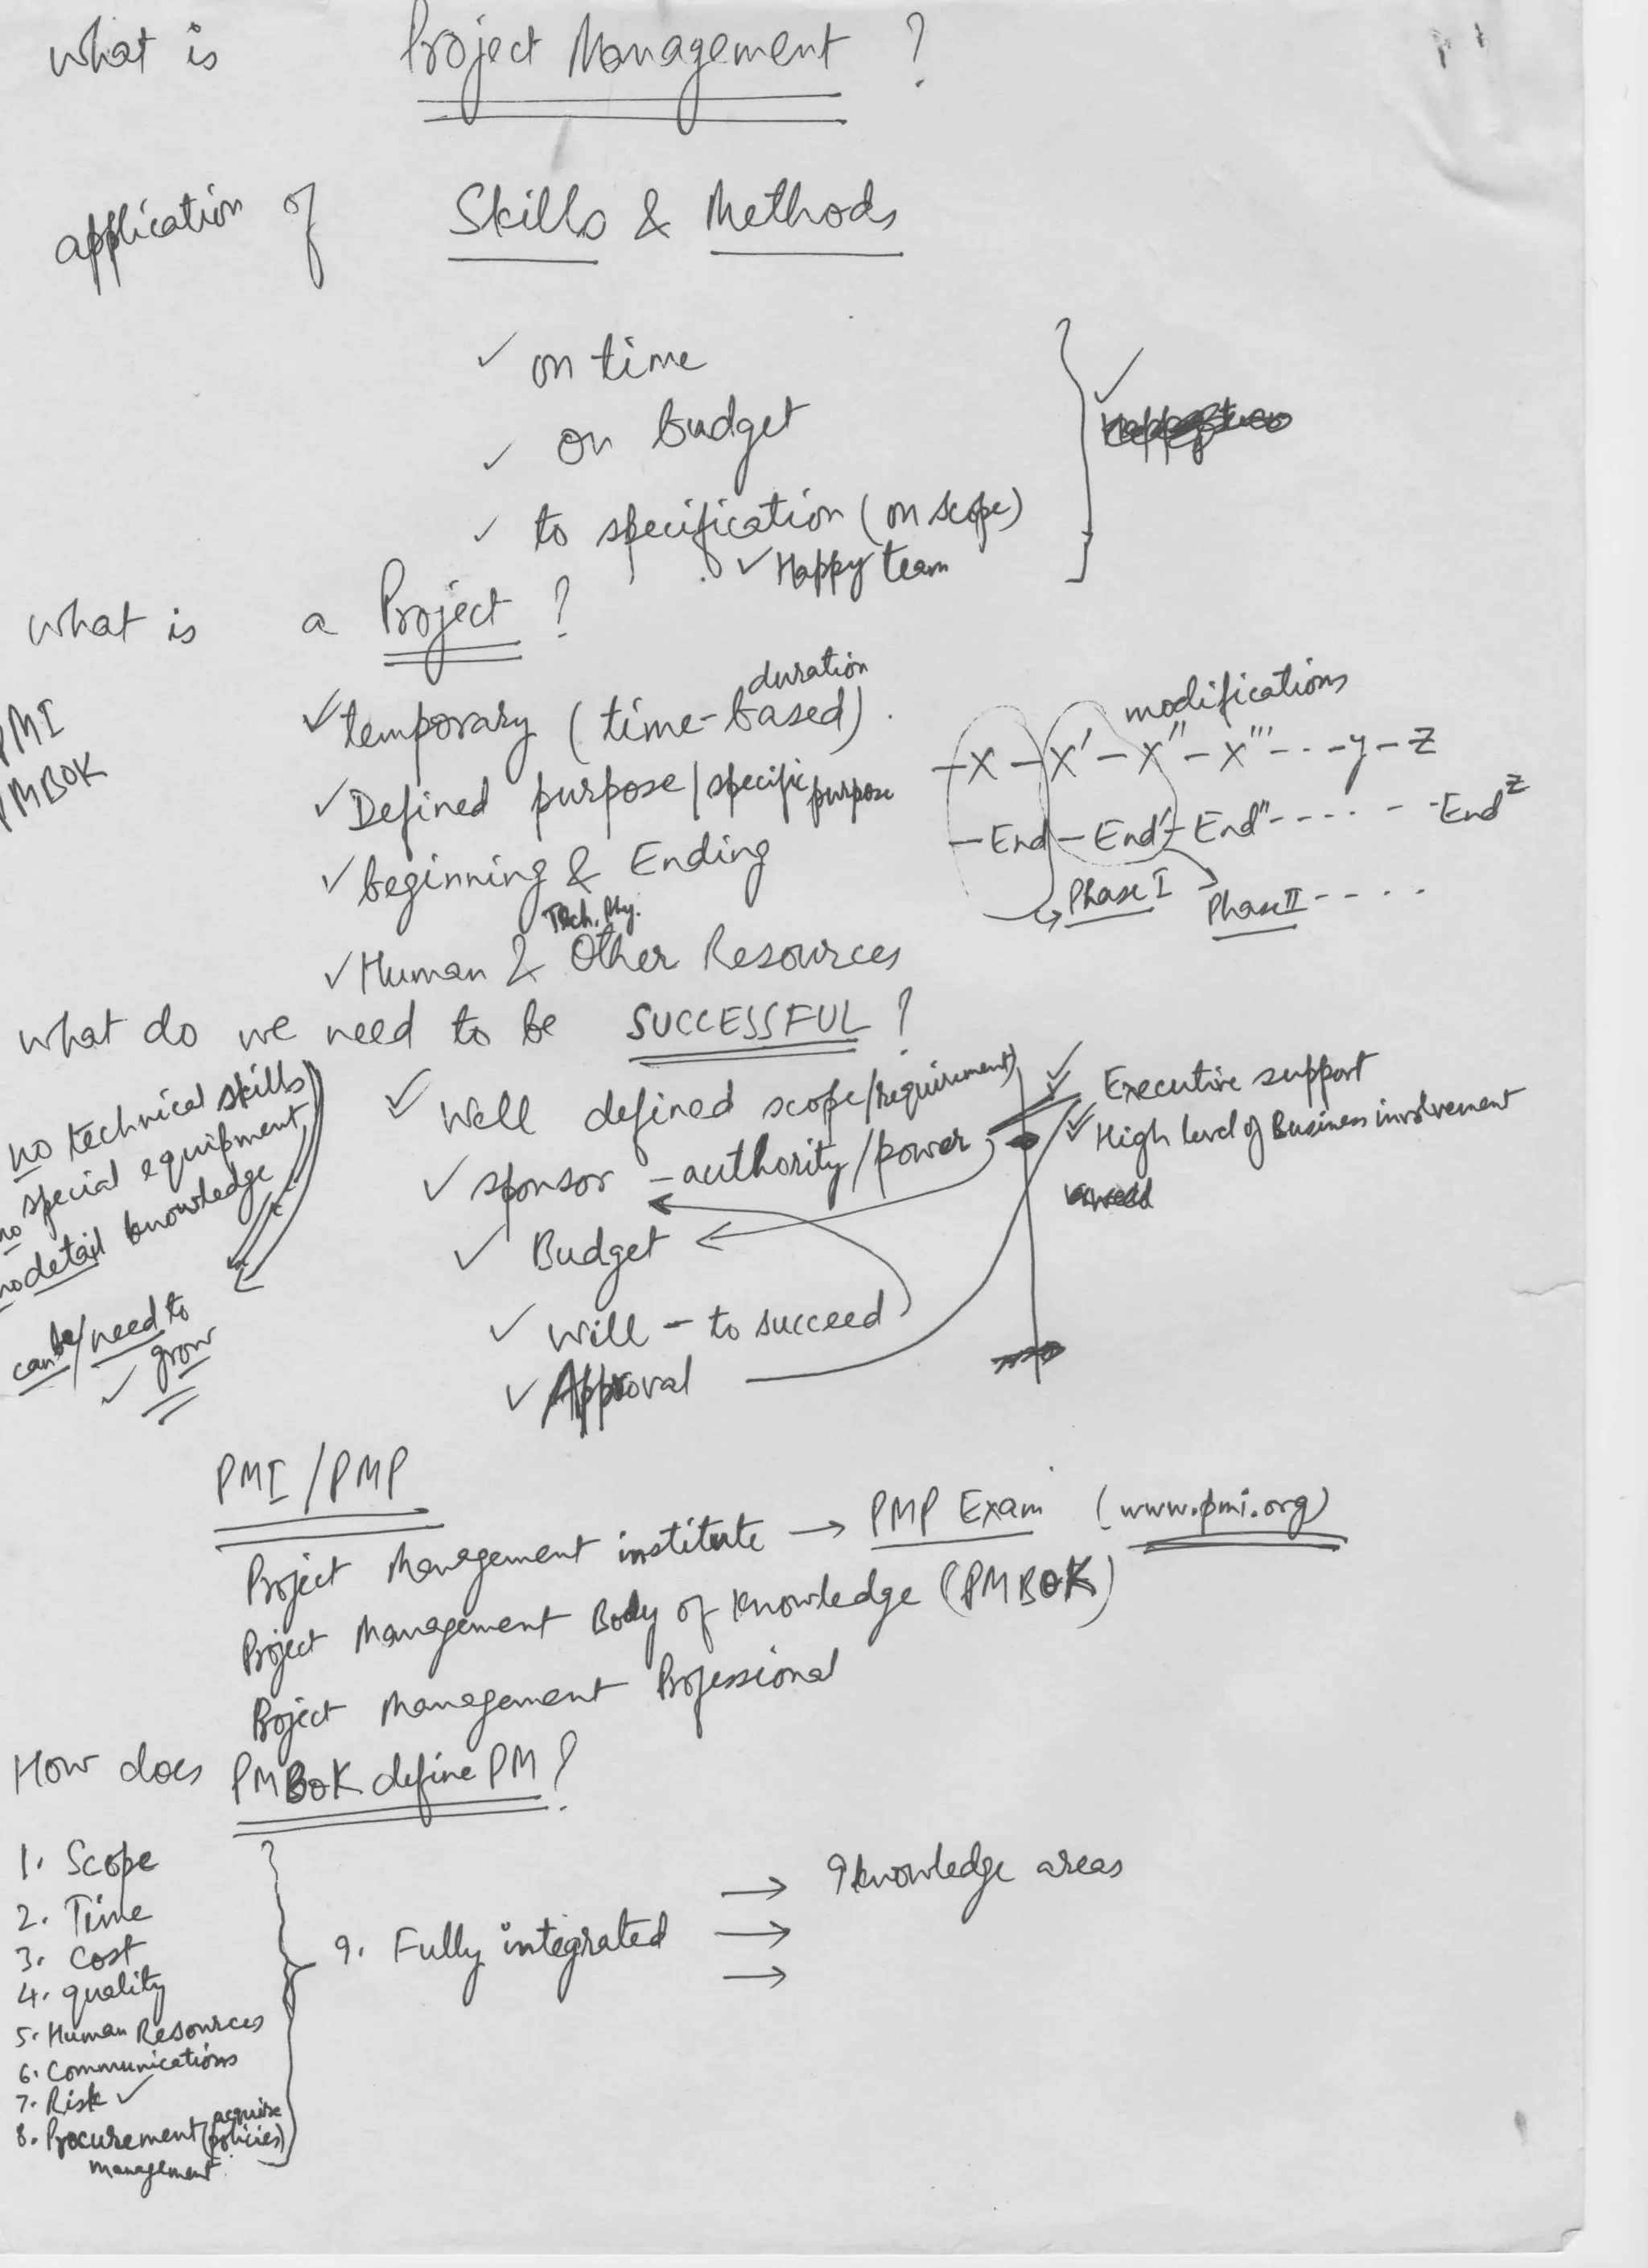 What is Project Management ?
application of Skills & Methods
✓ on time
✓ on budget
✓ to specification (on scope)
✓ Happy team
What is a Project ?
PMI
PMBOK
✓ temporary (time-based) duration
✓ Defined purpose / specific purpose
✓ beginning & Ending
Tech. Phy.
✓ Human & Other Resources
modifications
- X - X' - X'' - X''' - . . - y - Z
- End - End' - End'' - - - . . . - - End^Z
Phase I Phase II - - . .
What do we need to be SUCCESSFUL ?
no technical skills
no special equipment
no detail knowledge
can be/need to
✓ grow
✓ Well defined scope/requirement)
✓ sponsor - authority/power
✓ Budget
✓ Will - to succeed
✓ Approval
✓ Executive support
✓ High level of Business involvement
PMI / PMP
Project Management institute → PMP Exam (www.pmi.org)
Project Management Body of Knowledge (PMBOK)
Project Management Professional
How does PMBOK define PM ?
1. Scope
2. Time
3. Cost
4. quality
5. Human Resources
6. Communications
7. Risk ✓
8. Procurement (acquire policies)
management
9. Fully integrated → 9 knowledge areas
→
→